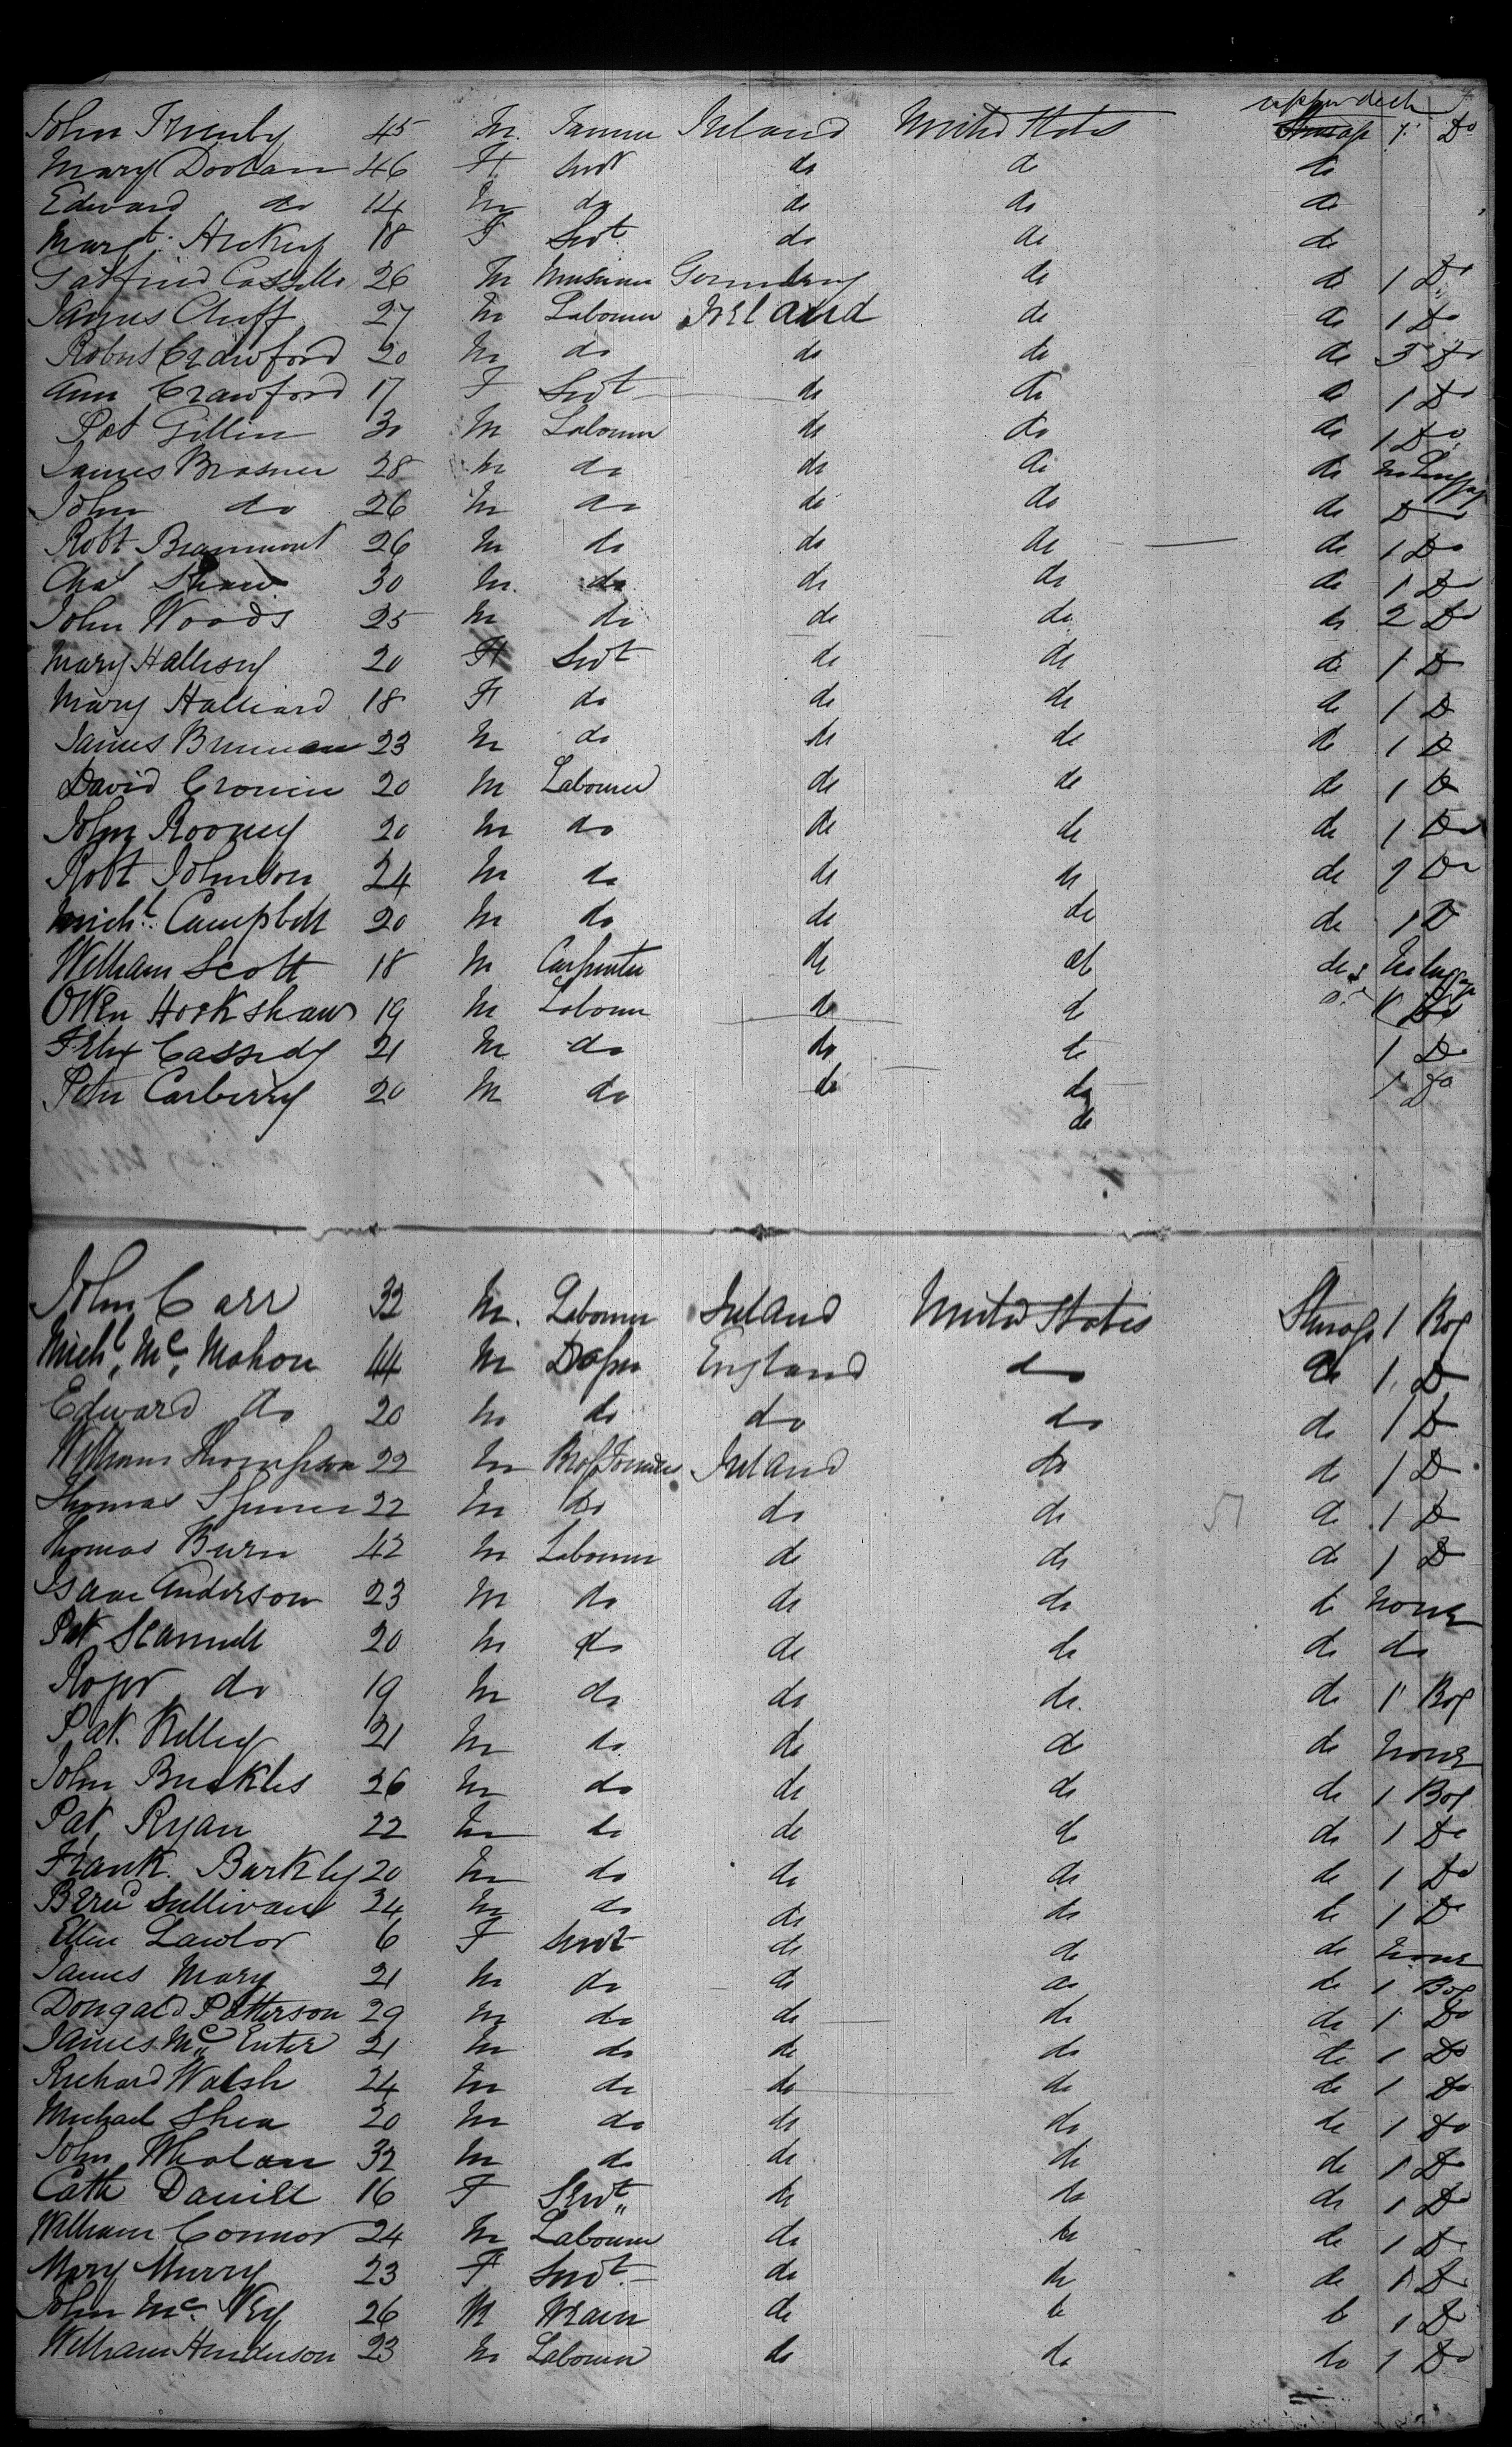 upper deck
John 45 M. Farmer Ireland United States Steerage 1 Do
Mary Doolan 46 F Servt do do do
Edward do 14 M do do do do
Margt. Hickey 18 F Servt do do do
26 M Germany do do 1 Do
James Cluff 27 M Labourer Ireland do do 1 Do
Robert Crawford 20 M do do do do 3 Do
Ann Crawford 17 F Servt do do do 1 Do
Pat Gillin 30 M Labourer do do do 1 Do
James Brosner 28 M do do do do no Luggage
John do 26 M do do do do Do
Robt 26 M do do do do 1 Do
Chas Shaw 30 M. do do do do 1 Do
John Woods 25 M do do do do 2 Do
Mary Hallisey 20 F Servt do do do 1 Do
Mary Halliard 18 F do do do do 1 Do
James Brennan 23 M do do do do 1 Do
David Cronin 20 M Labourer do do do 1 Do
John Rooney 20 M do do do do 1 Do
Robt Johnson 24 M do do do do Do
Michl. Campbell 20 M do do do do 1 Do
William Scott 18 M Carpenter do do do No luggage
Owen Hockshaw 19 M Labourer do do do 1 Do
Felix Cassidy 21 M do do do 1 Do
Peter Carberry 20 M do do do 1 Do
do
John Carr 32 M. Labourer Ireland United States Steerage 1 Box
Michl. Mc. Mahon 44 M England do do 1 Do
Edward do 20 M do do do do 1 Do
William Thompson 22 M Ireland do do 1 Do
Thomas 22 M do do do do 1 Do
Thomas Burn 42 M Labourer do do do 1 Do
Isaac Anderson 23 M do do do do none
Pat Scannell 20 M do do do do do
Roger do 19 M do do do do 1 Box
Pat. Kelley 21 M do do do do none
John Buckles 26 M do do do do 1 Box
Pat Ryan 22 M do do do do 1 Do
Frank Barkley 20 M do do do do 1 Do
Bernd Sullivan 24 M do do do do 1 Do
Ellen Lawlor 6 F Servt do do do none
James Mary 21 M do do do do 1 Box
Dongald Patterson 29 M do do do do 1 Do
James Mc Enter 21 M do do do do 1 Do
Richard Walsh 24 M do do do do 1 Do
Michael Shea 20 M do do do do 1 Do
John Whelan 32 M do do do do 1 Do
Cath Daniel 16 F Servt do do do 1 Do
William Connor 24 M Labourer do do do 1 Do
Mary Murry 23 F Servt. do do do 1 Do
John Mc. Vey 26 M do do do 1 Do
William Henderson 23 M Labourer do do do 1 Do